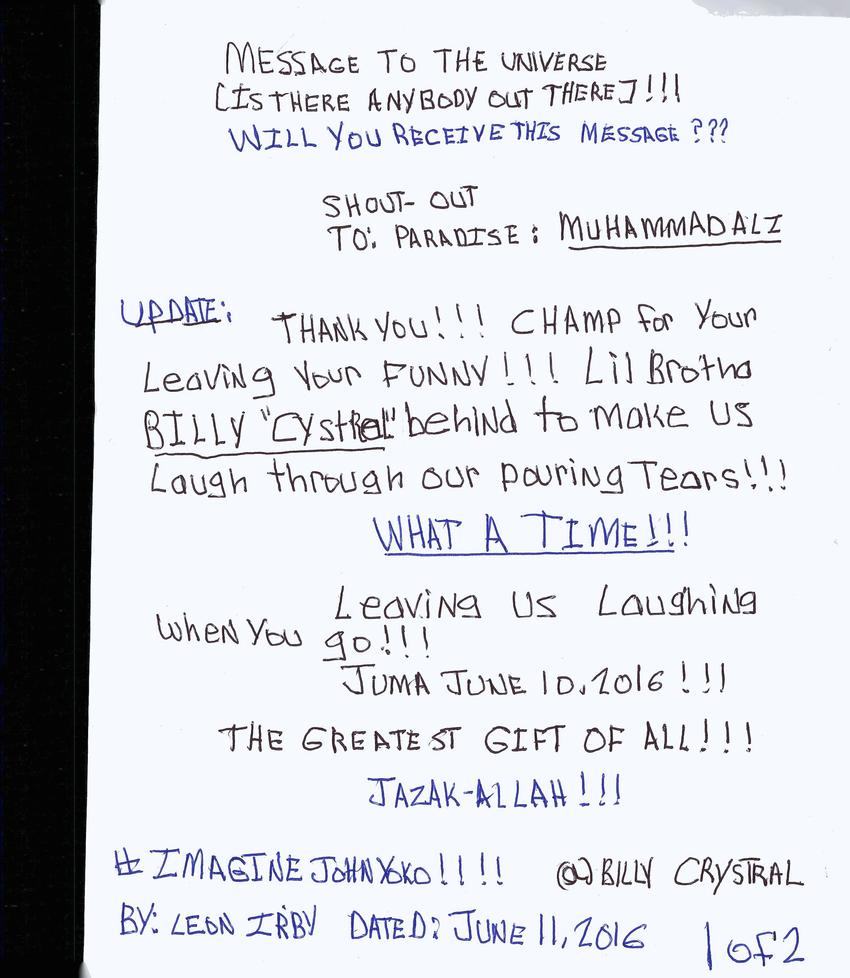 MESSAGE TO THE UNIVERSE
[IS THERE ANYBODY OUT THERE]!!!
WILL YOU RECEIVE THIS MESSAGE???
SHOUT-OUT
TO: PARADISE: MUHAMMAD ALI
UPDATE: THANK YOU!!! CHAMP for Your
Leaving Your FUNNY!!! Lil Brotha
BILLY "CYstRal" behind to make US
Laugh through our pouring Tears!!!
WHAT A TIME!!!
Leaving US Laughing
when You go!!!
JUMA JUNE 10, 2016!!!
THE GREATEST GIFT OF ALL!!!
JAZAK-ALLAH!!!
# IMAGINE JOHN YOKO!!!! @BILLY CRYSTRAL
BY: LEON IRBY DATED: JUNE 11, 2016 1 of 2